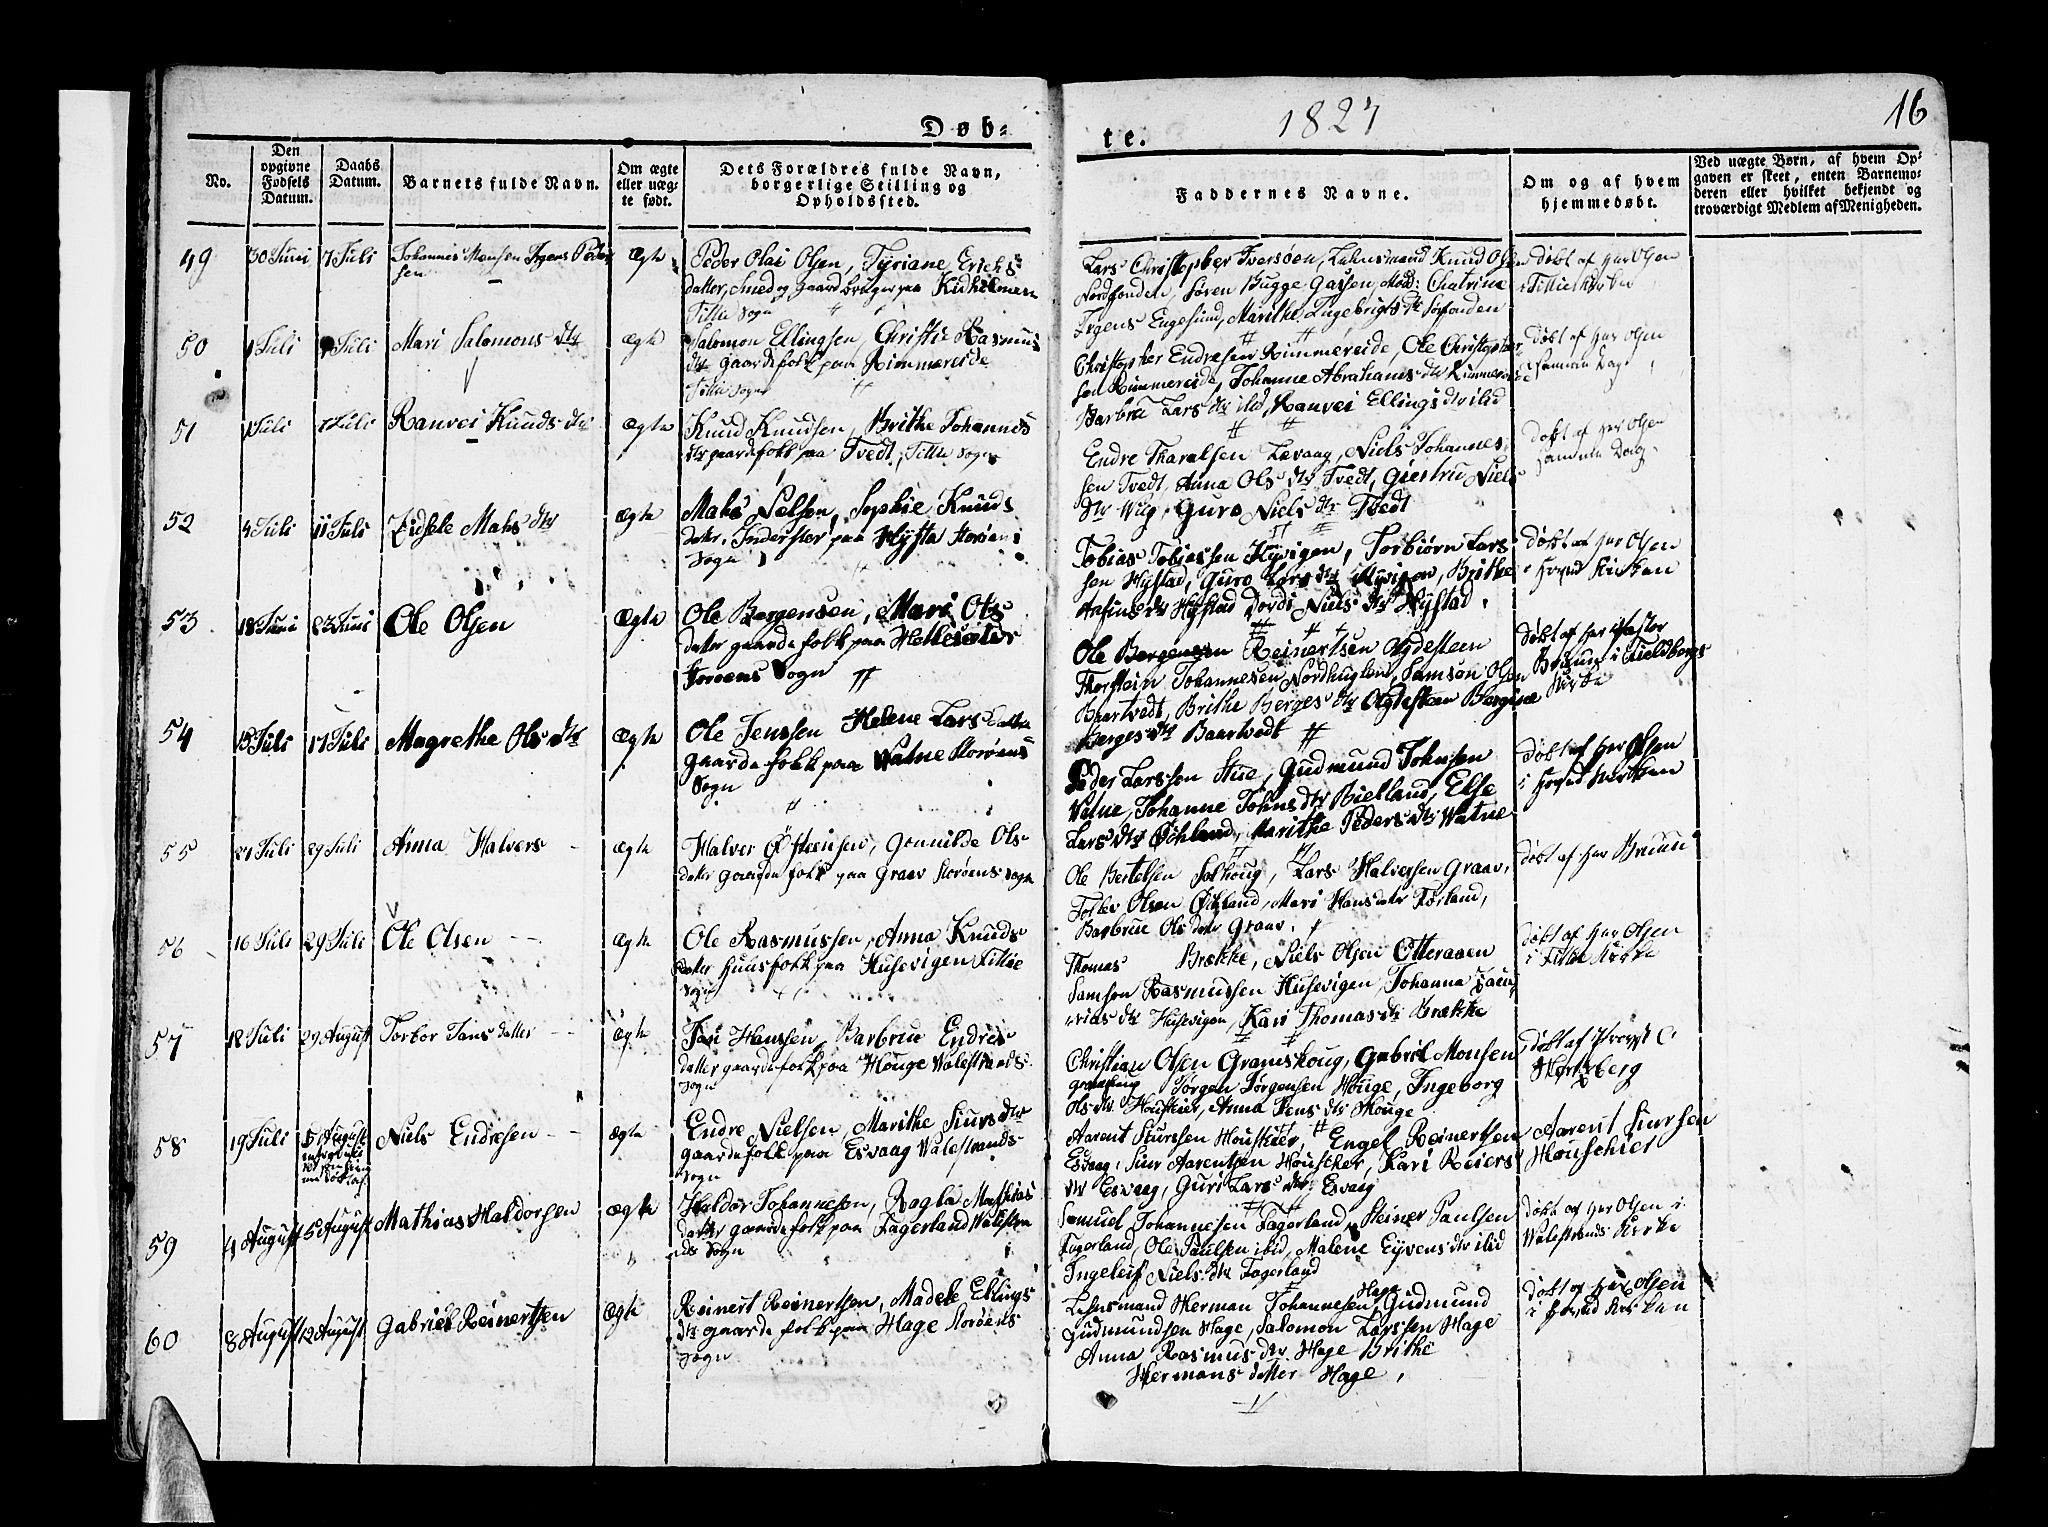 Døb-
te.
1827
16
No.
Den
opgivne
Fødsels
Datum.
Daabs
Datum.
Barnets fulde Navn.
Om ægte
eller uæg-
te født.
Dets Forældres fulde Navn,
borgerlige Stilling og
Opholdssted.
Faddernes Navne.
Om og af hvem
hjemmedøbt.
Ved uægte Børn, af hvem Op-
gaven er skeet, enten Barnemo-
deren eller hvilket bekjendt og
troværdigt Medlem af Menigheden.
49
30 Juni
7 Juli
Johannes Monsen Irgens Peder
sen
Ægte
Peder Olai Olsen, Tyriane Erichs
datter, Smed og Gaardbruger paa
Fittie Sogn
Lars Christopher Iversøen, Lehnsmand Knud Olsen
Nordfonden, Søren Bugge Mad: Chatrine
Irgens Engesund, Marithe Ingebrigts dtr Sørfonden
døbt af Her Olsen
i Fittie Kirke
50
1 Juli
7 Juli
Mari Salomons dtr
Ægte
Salomon Ellingsen, Christie Rasmus
dtr Gaardefolk paa Rimmereide
Fittie Sogn
Christopher Endresen Rimmereide, Ole Christopher
sen Rimmereide, Johanne Abrahams dtr Rimmereide
Barbru Lars dtr ibid, Ranvei Ellings dtr ibid
døbt af Her Olsen
samme Dag
51
1 Juli
7 Juli
Ranvei Knuds dtr
Ægte
Knud Knudsen, Brithe Johannes
dtr gaardefolk paa Tvedt, Fittie Sogn
Endre Tharalsen Levaag, Niels Johannes
sen Tvedt, Anna Ols dtr Tvedt, Giertru Niels
dtr Wiig, Guro Niels dtr Tvedt
døbt af Her Olsen
samme Dag
52
4 Juli
11 Juli
Zidsele Mahs dtr
Ægte
Mahs Nelsen, Sophie Knuds
datter, Inderster paa Hysta Storøens
Sogn
Tobias Tobiassen Hyvigen, Torbiørn Lars
sen Hystad, Guro Lars dtr Hyvigen, Brithe
Anfins dtr Hystad Dordi Niels dtr Hystad
døbt af Her Olsen
i Hoved Kirken
53
18 Juni
23 Juni
Ole Olsen
Ægte
Ole Bergensen, Mari Ols
datter gaardefolk paa Hellesøter
Storøens Sogn
Ole Bergensen Reinertsen Nydesteen
Thorstein Johannesen Nordhuglen, Samson Olsen
Baartvedt, Brithe Berges dtr
Berges dtr Baartvedt
døbt af Her Pastor
Bruun i Fieldbergs
Kirke
54
15 Juli
17 Juli
Magrethe Ols dtr
Ægte
Ole Jenssen Helene Lars datter
gaardefolk paa Vatne Storøens
Sogn
Peder Larssen Stue, Gudmund Johnsen
Vatne, Johanne Johns dtr Bielland, Else
Lars dtr Økland, Marithe Peders dtr Watne
døbt af Her Olsen
i Hoved Kirken
55
21 Juli
29 Juli
Anna Halvers
Ægte
Halver Østeensen, Gonnilde Ols
datter gaardefolk paa Graav Storøens Sogn
Ole Bertelsen Solhoug, Lars Halversen Graav,
Tollev Olsen Økland, Mari Hans dater Førland,
Barbrue Ols dater Graav.
døbt af Her Bruun
56
16 Juli
29 Juli
Ole Olsen
Ægte
Ole Rasmussen, Anna Knuds
datter huusfolk paa Husevigen Fittie
Sogn
Thomas Brække, Niels Olsen Otteraaen
Samson Rasmussen Husevigen, Johanna Zacha
rias dtr Husevigen, Kari Thomas dtr Brække
døbt af Her Olsen
i Fittie Kirke
57
18 Juli
29 August
Torbor Jans datter
Ægte
Jan Hanssen, Barbrue Endres
datter gaardefolk paa Houge Valestrands
Sogn
Christian Olsen Gramskoug, Gabriel Monsen
Jørgen Jørgensen Houge, Ingeborg
Ols dtr Houskier, Anna Jens dtr Houge
døbt af Provst C
Hertzberg
58
19 Juli
5 August
Niels Endresen
Ægte
Endre Nielsen, Marithe Siurs dtr
gaardefolk paa Esvaag Valestrands
Sogn
Aarent Siurssen Houskier, Engel Reinertsen
Esvaag, Siur Aarentsen Houskier, Kari Reiers
dtr Esvaag, Guri Lars dtr Esvaag
Aarent Siursen
Houschier
59
4 August
5 August
Mathias Haldorsen
Ægte
Haldor Johannesen, Ragla Mathias
datter gaardefolk paa Fagerland Walestra
nds Sogn
Samuel Johannesen Fagerland, Steiner Paulsen
Fagerland, Ole Paulsen ibid, Malene Eyvens dtr ibid
Ingeleif Niels dtr Fagerland
døbt af Her Olsen i
Walestrands Kirke
60
8 August
12 August
Gabriel Reinertsen
Ægte
Reinert Reinertsen, Madele Ellings
dtr gaardefolk paa Hage Storøens
Sogn
Lehnsmand Herman Johannesen Hage, Gudmund
Gudmundsen Hage, Salomon Larssen Hage
Anna Rasmus dtr Hage Brithe
Hermans datter Hage,
døbt af Her Olsen
i Hoved Kirken